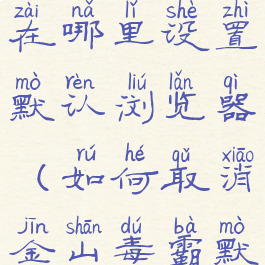 zài nǎ lǐ shè zhì
在哪里设置
mò rèn liú lǎn qì
默认浏览器
rú hé qǔ xiāo
（如何取消
jīn shān dú bà mò
金山毒霸默